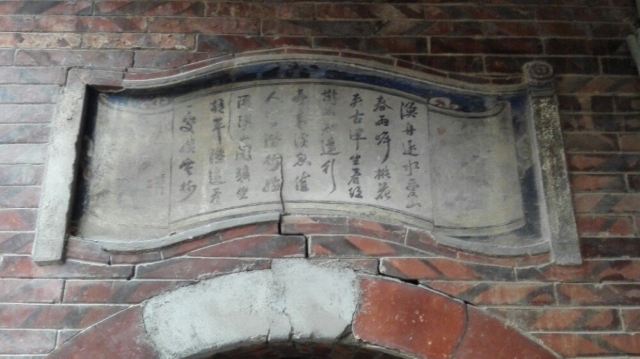 漁舟逐水愛山
春兩岸桃花
夾古津坐看紅
樹不知遠行
盡青溪忽值
人山口潛行始
隈隩開曠望
旋平陸遙看
一處攢雲樹